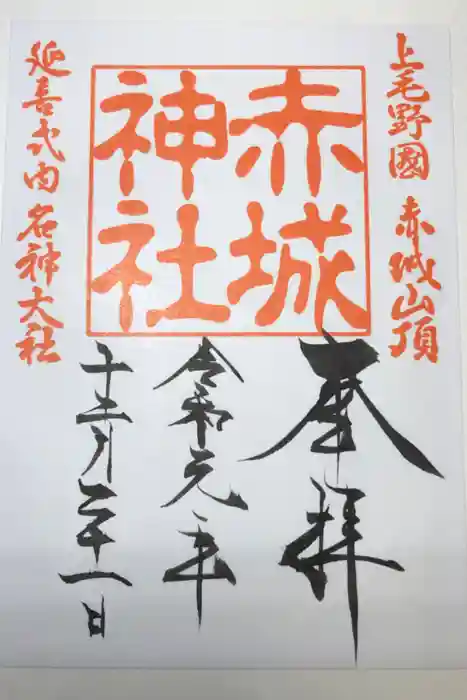 上毛野國 赤城山頂
赤城
神社
奉拝
令和元年
十二月二十一日
延喜式内名神大社